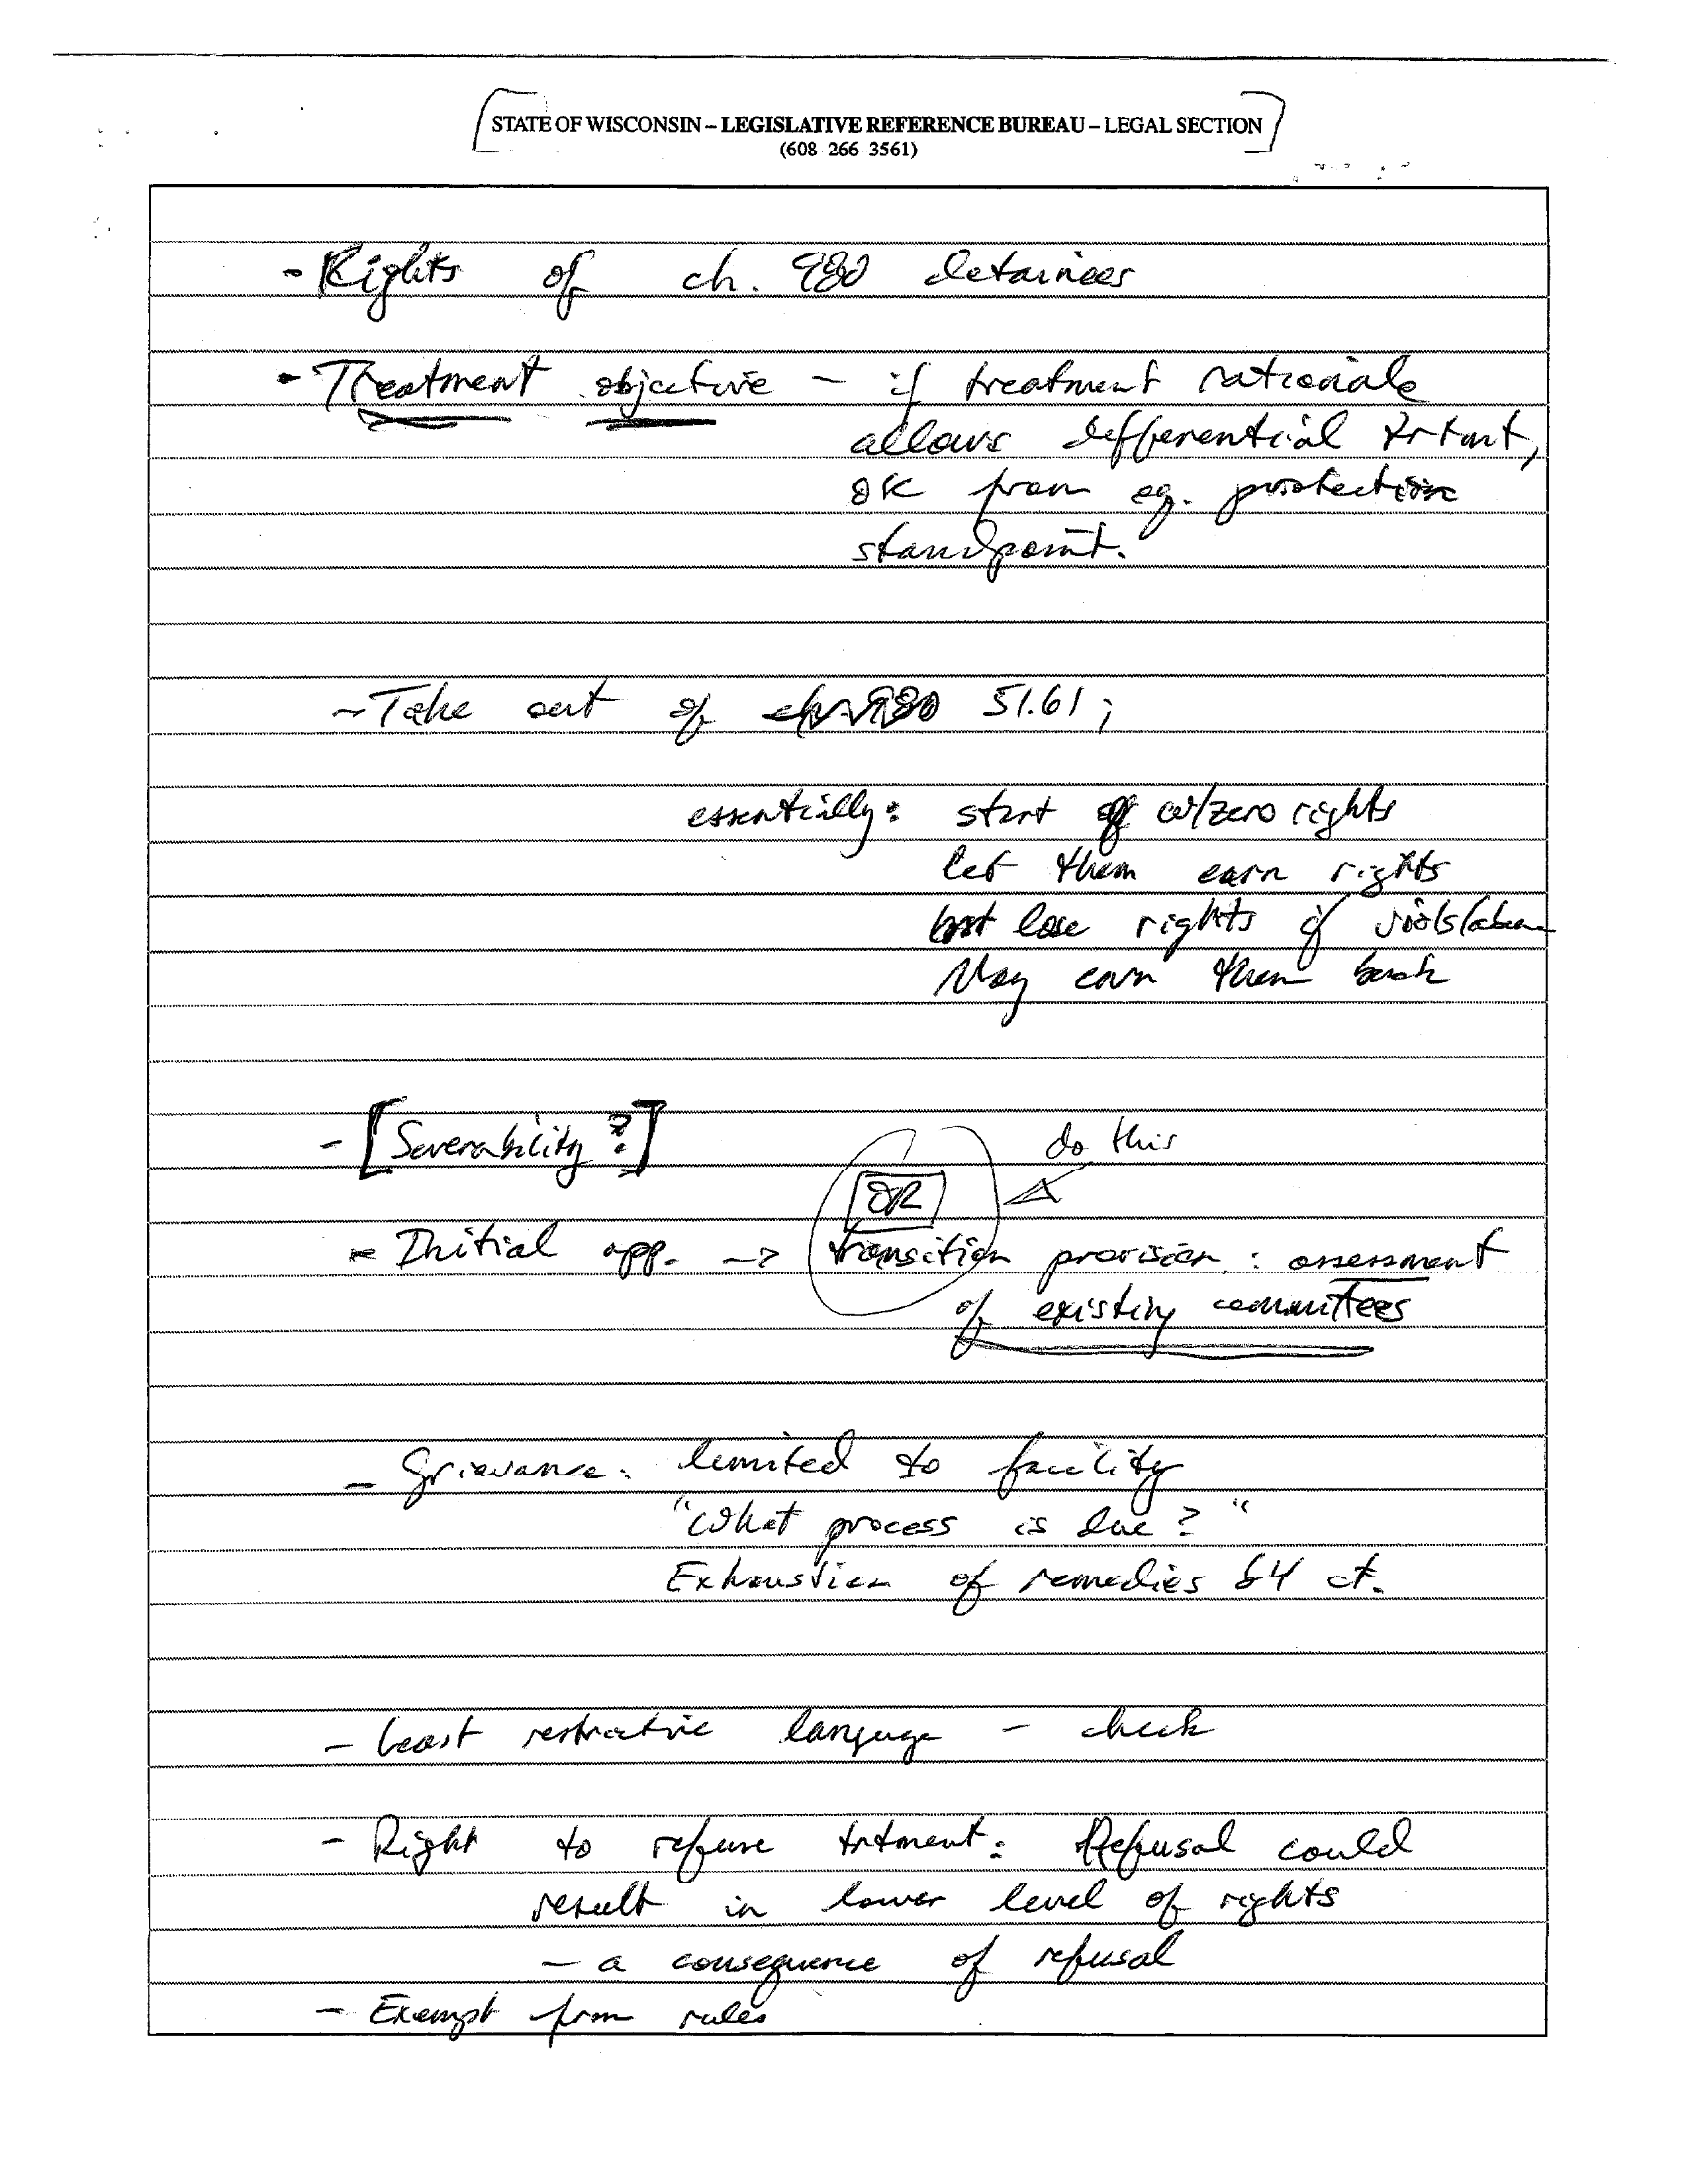 STATE OF WISCONSIN – LEGISLATIVE REFERENCE BUREAU – LEGAL SECTION
(608 266 3561)
- Rights of ch. 980 detainees
- Treatment objective - if treatment rationale
allows differential trtmt,
OK from eq. protection
standpoint.
- Take out of ch. 980 51.61;
essentially: start off w/zero rights
let them earn rights
but lose rights if viols/abuse
May earn them back
- [Severability?]
do this
OR
- Initial app. -> transition provision: assessment
of existing committees
- Grievance: limited to facility
"What process is due?"
Exhaustion of remedies b4 ct.
- Least restrictive language - check
- Right to refuse trtment: Refusal could
result in lower level of rights
- a consequence of refusal
- Exempt from rules